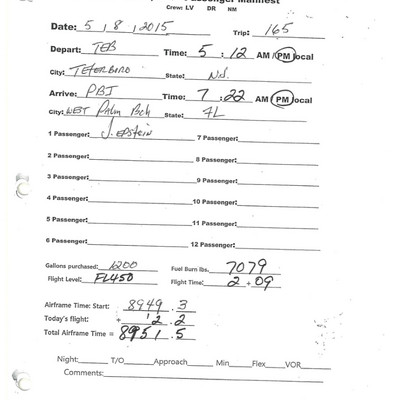 Passenger Manifest
Crew: LV DR NM
Date: 5 / 8 / 2015 Trip: 165
Depart: TEB Time: 5 : 12 AM / PM local
City: TETERBORO State: NJ
Arrive: PBI Time: 7 : 22 AM / PM local
City: WEST Palm Bch State: FL
1 Passenger: J. EPSTEIN 7 Passenger:
2 Passenger: 8 Passenger:
3 Passenger: 9 Passenger:
4 Passenger: 10 Passenger:
5 Passenger: 11 Passenger:
6 Passenger: 12 Passenger:
Gallons purchased: 1200 Fuel Burn lbs. 7079
Flight Level: FL450 Flight Time: 2 + 09
Airframe Time: Start: 8949 . 3
Today's flight: + 2 . 2
Total Airframe Time = 8951 . 5
Night: T/O Approach Min Flex VOR
Comments: